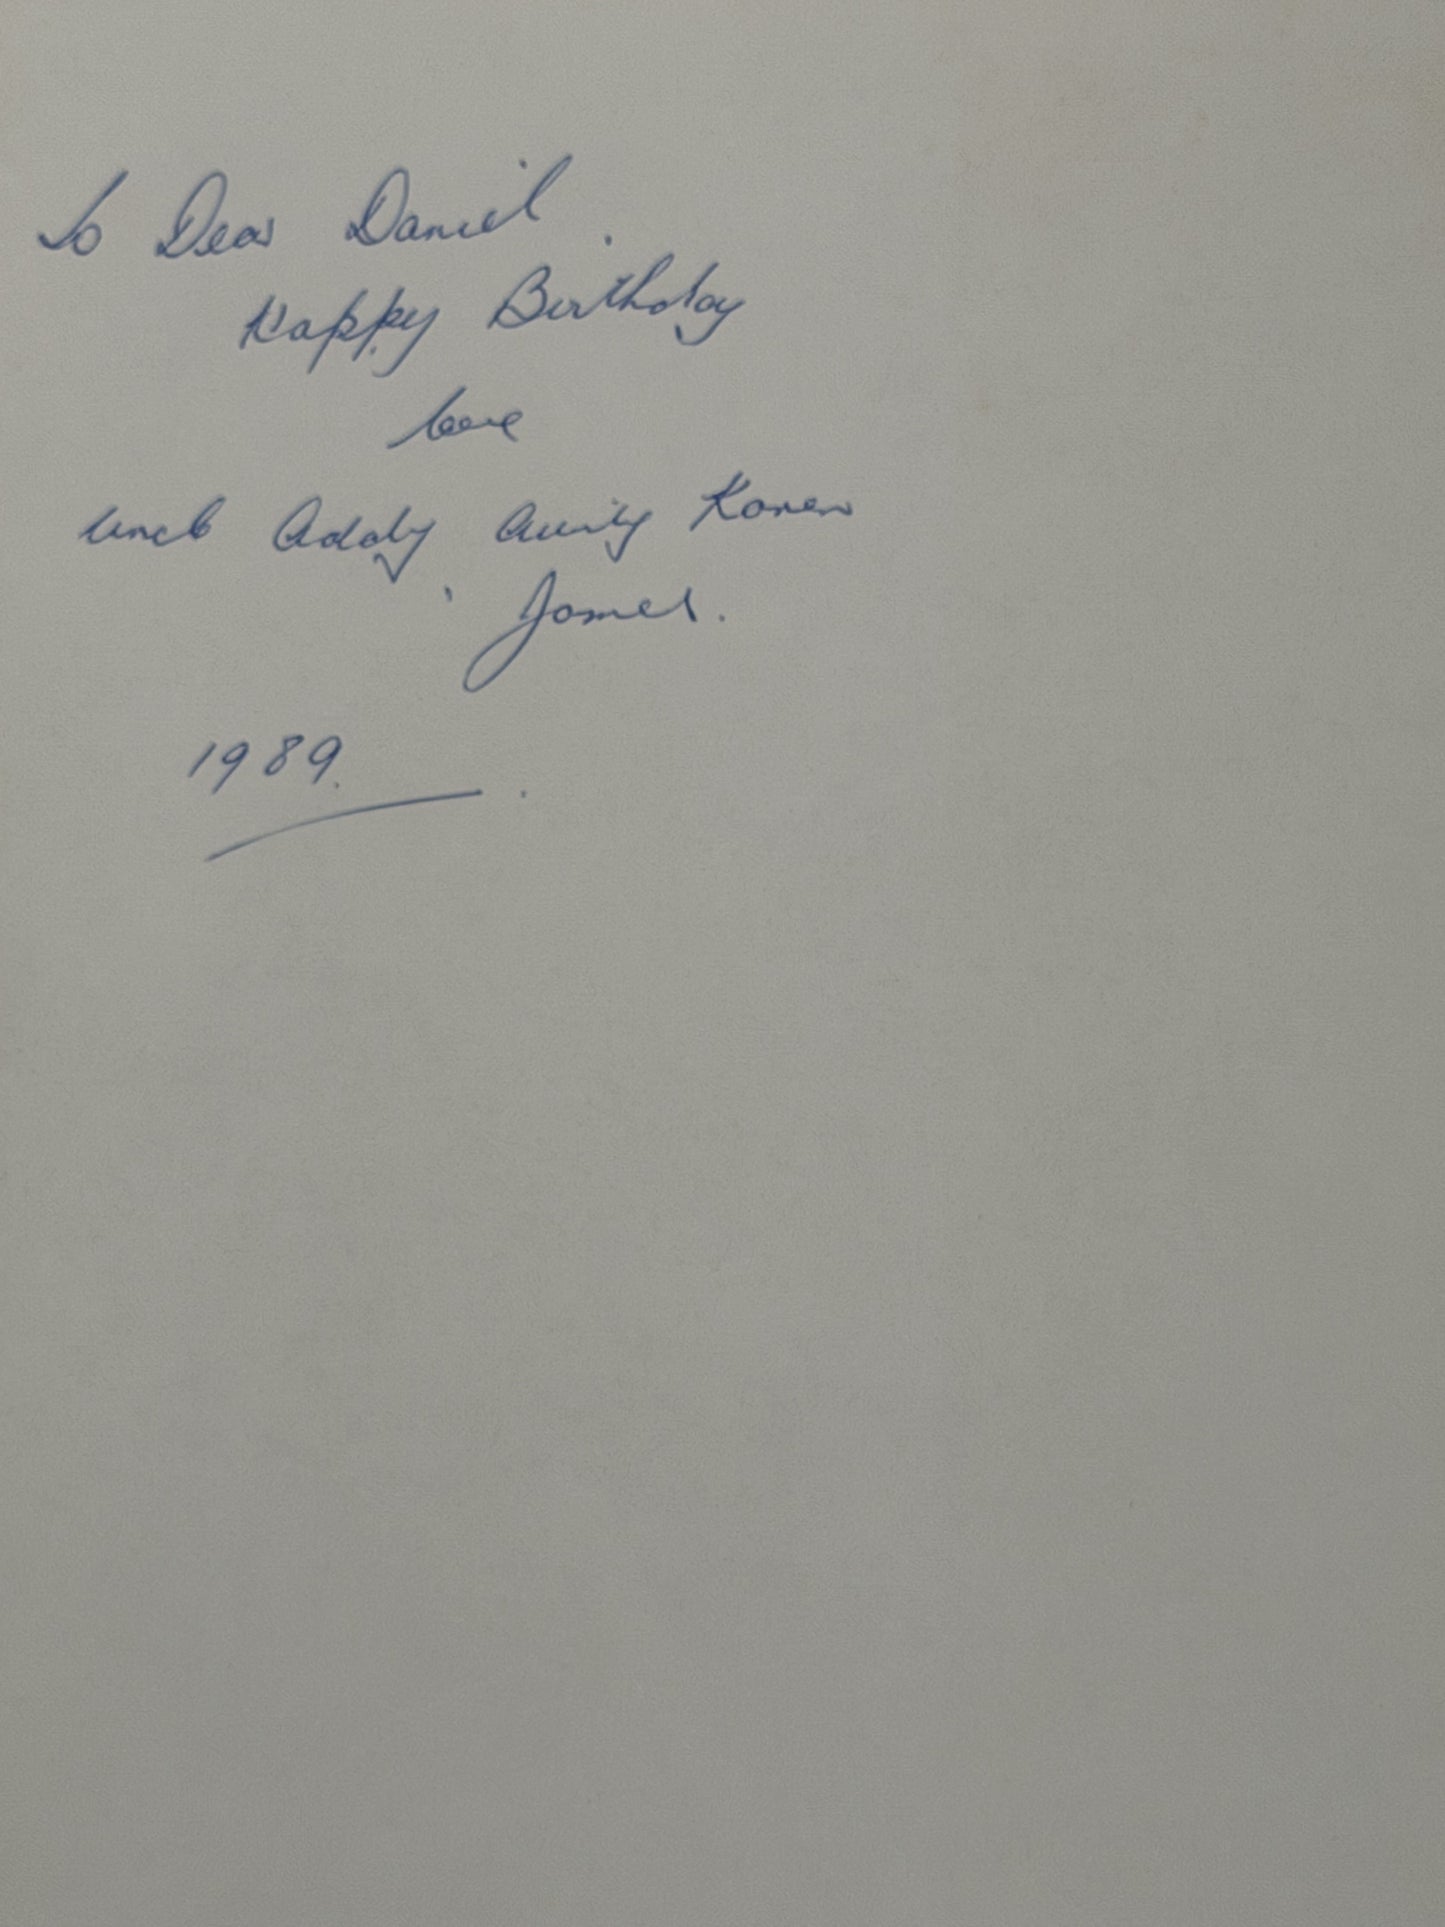 To Dear Daniel.
Happy Birthday
love
Uncle Addy Aunty Karen
James.
1989.